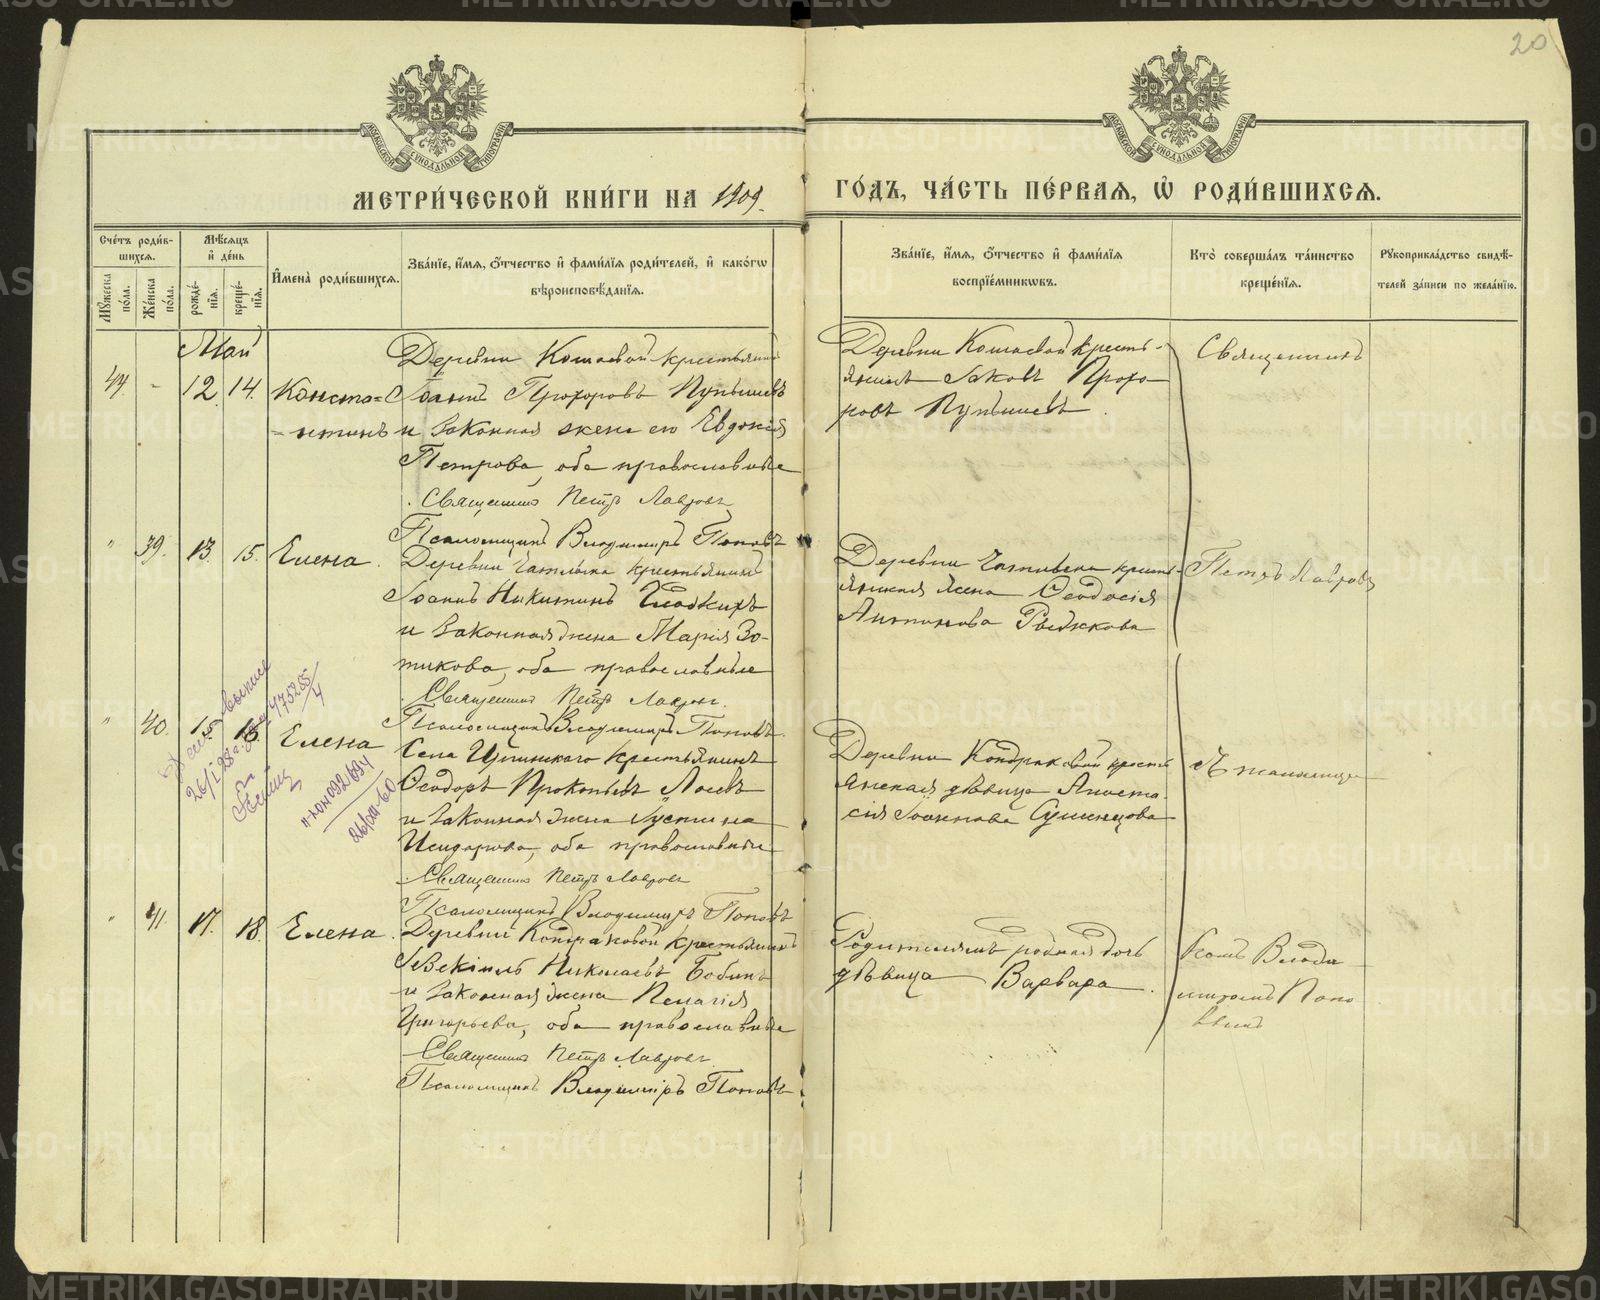 20
МОСКОВСКОЙ СѴНОДАЛЬНОЙ ТИПОГРАФІИ
МОСКОВСКОЙ СѴНОДАЛЬНОЙ ТИПОГРАФІИ
МЕТРИ́ЧЕСКОЙ КНИ́ГИ НА 1909.
ГО́ДЪ, ЧА́СТЬ ПЕ́РВАЯ, Ѡ҆ РОДИ́ВШИХСѦ.
Сче́тъ роди́в-
шихсѧ.
Мѹ́жеска по́ла.
Же́нска по́ла.
Мѣ́сѧцъ и҆ де́нь
рожде́-нїѧ.
креще́-нїѧ.
И҆мена̀ роди́вшихсѧ.
Зва́нїе, и҆́мѧ, ѻ҆́тчество и҆ фами́лїѧ роди́телей, и҆ како́гѡ
вѣроисповѣ́данїѧ.
Зва́нїе, и҆́мѧ, ѻ҆́тчество и҆ фами́лїѧ
воспрїе́мникѡвъ.
Кто̀ соверша́лъ та́инство
креще́нїѧ.
Рѹкоприкла́дство свидѣ́-
телей за́писи по жела́нїю.
Май
44. - 12 14. Конста=
=нтинъ
Деревни Кошаевой крестьянинъ
Іоаннъ Прохоровъ Пупышевъ
и законная жена его Евдокія
Петрова, оба православные
Священникъ Петръ Лавровъ
Псаломщикъ Владимиръ Поповъ
Деревни Кошаевой кресть-
янинъ Іаковъ Прохо-
ровъ Пупышевъ.
Священникъ
" 39. 13. 15. Елена.
крестьянинъ
Іоаннъ Никитинъ Гладкихъ
и законная жена Марія Зо-
тикова, оба православные
Священникъ Петръ Лавровъ.
Псаломщикъ Владимиръ Поповъ.
Деревни кресть-
янская жена Ѳеодосія
Антонова Рычкова
Петръ Лавровъ
" 40. 15 16. Елена
Села крестьянинъ
Ѳеодоръ Прокопьевъ Лаевъ
и законная жена Іустина
Исидорова, оба православные
Священникъ Петръ Лавровъ
Псаломщикъ Владимиръ Поповъ
Деревни Кондраковой кресть
янская дѣвица Анаста-
сія Іоаннова Сушенцова
26/I 28 г.
475255/4
II-ЮН 092694
" 41. 17. 18. Елена.
Деревни Кондраковой крестьянинъ
Іезекіиль Николаевъ Бабинъ
и законная жена Пелагія
Григорьева, оба православные
Священникъ Петръ Лавровъ
Псаломщикъ Владимиръ Поповъ
Родителямъ родная дочь
дѣвица Варвара.
Псал. Влади
миромъ Попо
вымъ
METRIKI.GASO-URAL.RU